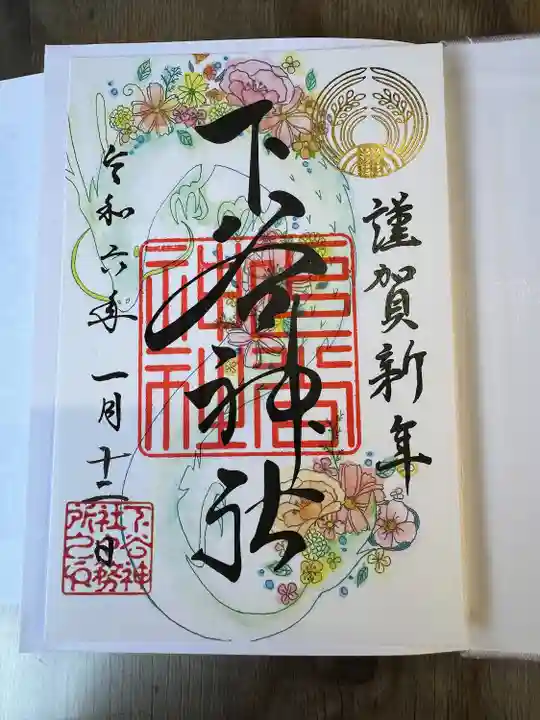 謹賀新年
下谷神社
令和六年一月十二日
下谷神
社社務
所之印